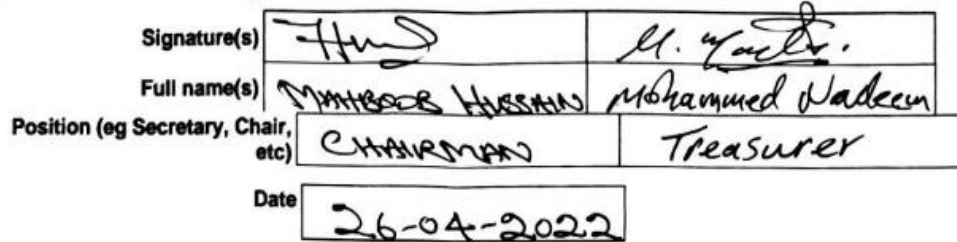 Signature(s)
Full name(s) MAHBOOB HUSSAIN Mohammed Nadeem
Position (eg Secretary, Chair,
etc) CHAIRMAN Treasurer
Date 26-04-2022